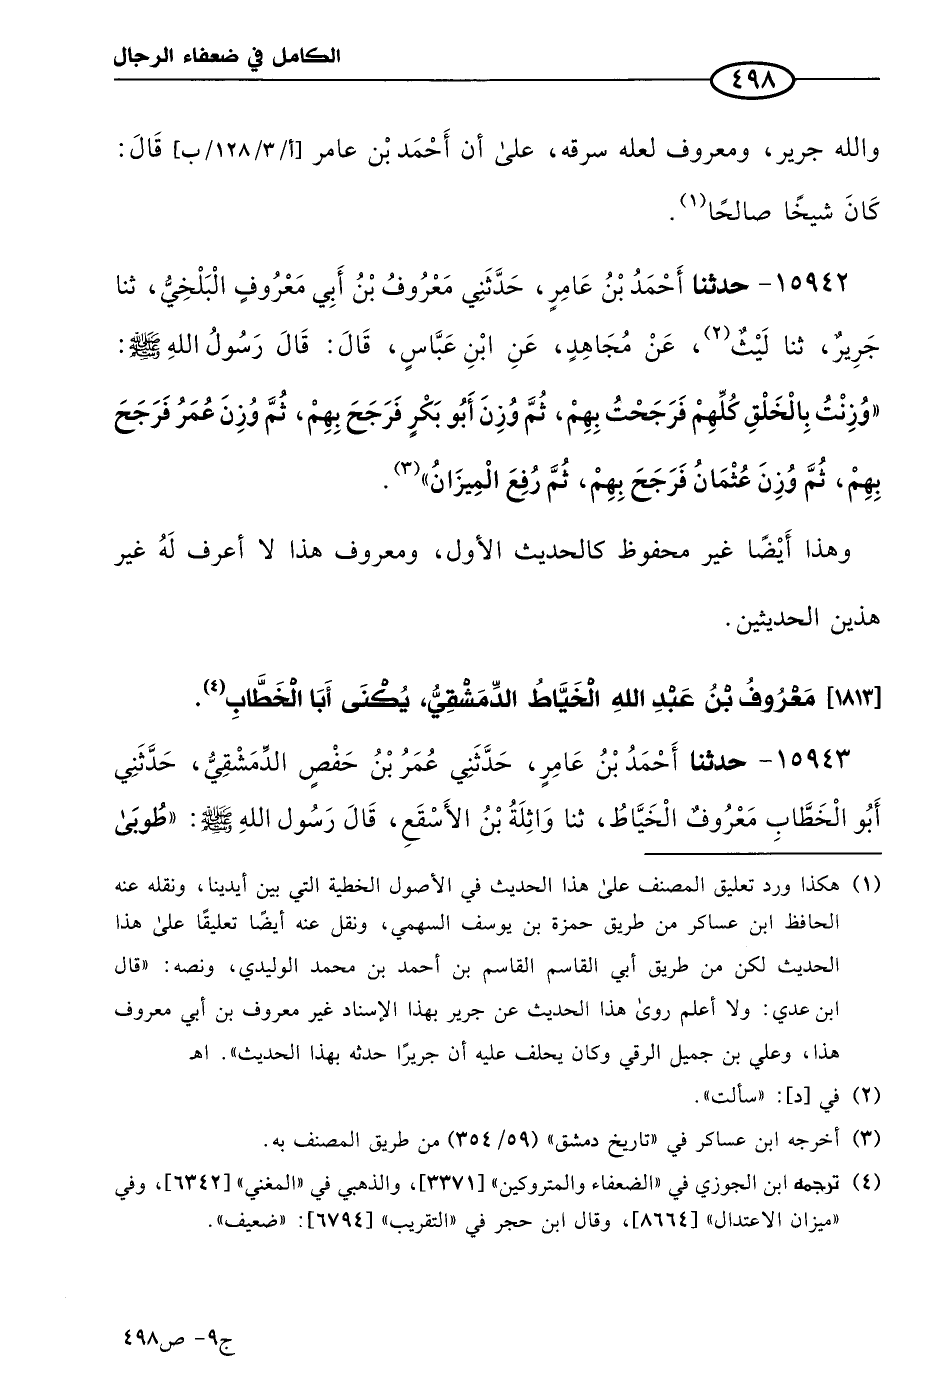 الكامل في ضعفاء الرجال
٤٩٨
والله جرير، ومعروف لعله سرقه، علىٰ أن أَحْمَد بْن عامر [أ/٣/١٢٨/ب] قَالَ:
كَانَ شيخًا صالحًا(١).
١٥٩٤٢- حدثنا أَحْمَدُ بْنُ عَامِرٍ، حَدَّثَنِي مَعْرُوفُ بْنُ أَبِي مَعْرُوفٍ الْبَلْخِيُّ، ثنا
جَرِيرٌ، ثنا لَيْثٌ(٢)، عَنْ مُجَاهِدٍ، عَنِ ابْنِ عَبَّاسٍ، قَالَ: قَالَ رَسُولُ اللهِ ﷺ:
«وُزِنْتُ بِالْخَلْقِ كُلِّهِمْ فَرَجَحْتُ بِهِمْ، ثُمَّ وُزِنَ أَبُو بَكْرٍ فَرَجَحَ بِهِمْ، ثُمَّ وُزِنَ عُمَرُ فَرَجَحَ
بِهِمْ، ثُمَّ وُزِنَ عُثْمَانُ فَرَجَحَ بِهِمْ، ثُمَّ رُفِعَ الْمِيزَانُ»(٣).
وهذا أَيْضًا غير محفوظ كالحديث الأول، ومعروف هذا لا أعرف لَهُ غير
هذين الحديثين.
[١٨١٣] مَعْرُوفُ بْنُ عَبْدِ اللهِ الْخَيَّاطُ الدِّمَشْقِيُّ، يُكْنَى أَبَا الْخَطَّابِ(٤).
١٥٩٤٣- حدثنا أَحْمَدُ بْنُ عَامِرٍ، حَدَّثَنِي عُمَرُ بْنُ حَفْصٍ الدِّمَشْقِيُّ، حَدَّثَنِي
أَبُو الْخَطَّابِ مَعْرُوفٌ الْخَيَّاطُ، ثنا وَاثِلَةُ بْنُ الأَسْقَعِ، قَالَ رَسُول اللهِ ﷺ: «طُوبَىٰ
(١) هكذا ورد تعليق المصنف علىٰ هذا الحديث في الأصول الخطية التي بين أيدينا، ونقله عنه
الحافظ ابن عساكر من طريق حمزة بن يوسف السهمي، ونقل عنه أيضًا تعليقًا علىٰ هذا
الحديث لكن من طريق أبي القاسم القاسم بن أحمد بن محمد الوليدي، ونصه: «قال
ابن عدي: ولا أعلم روىٰ هذا الحديث عن جرير بهذا الإسناد غير معروف بن أبي معروف
هذا، وعلي بن جميل الرقي وكان يحلف عليه أن جريرًا حدثه بهذا الحديث». اهـ
(٢) في [د]: «سألت».
(٣) أخرجه ابن عساكر في «تاريخ دمشق» (٥٩/ ٣٥٤) من طريق المصنف به.
(٤) ترجمه ابن الجوزي في «الضعفاء والمتروكين» [٣٣٧١]، والذهبي في «المغني» [٦٣٤٢]، وفي
«ميزان الاعتدال» [٨٦٦٤]، وقال ابن حجر في «التقريب» [٦٧٩٤]: «ضعيف».
ج٩- ص٤٩٨